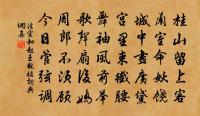 桂山留上客
蘭室命妖嬈
城中畫廣黛
宮裏束纖腰
舞袖風前舉
歌聲扇後嬌
周郎不須顧
今日管弦調
法宣和趙王觀妓詞典
網集